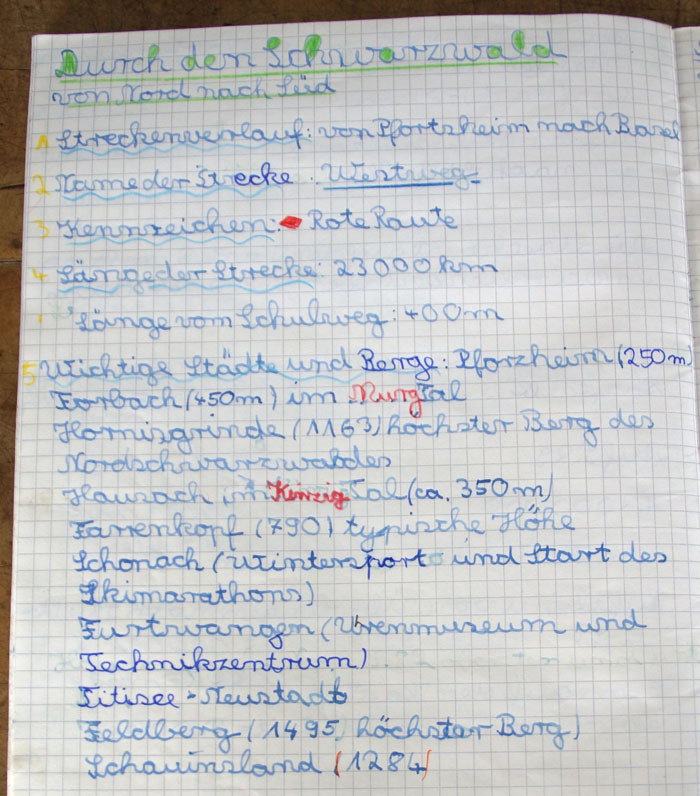 Durch den Schwarzwald
von Nord nach Süd
1 Streckenverlauf: von Pfortzheim nach Basel
2 Name der Strecke: Westweg
3 Kennzeichen: Rote Raute
4 Länge der Strecke: 23000 km
Länge vom Schulweg: 400m
5 Wichtige Städte und Berge: Pforzheim (250m)
Forbach (450m) im Murgtal
Hornisgrinde (1163) höchster Berg des
Nordschwarzwaldes
Hausach im Kinzigtal (ca. 350m)
Farrenkopf (790) typische Höhe
Schonach (Wintersport und Start des
Skimarathons)
Furtwangen (Uhrenmuseum und
Technikzentrum)
Titisee-Neustadt
Feldberg (1495, höchster Berg)
Schauinsland (1284)